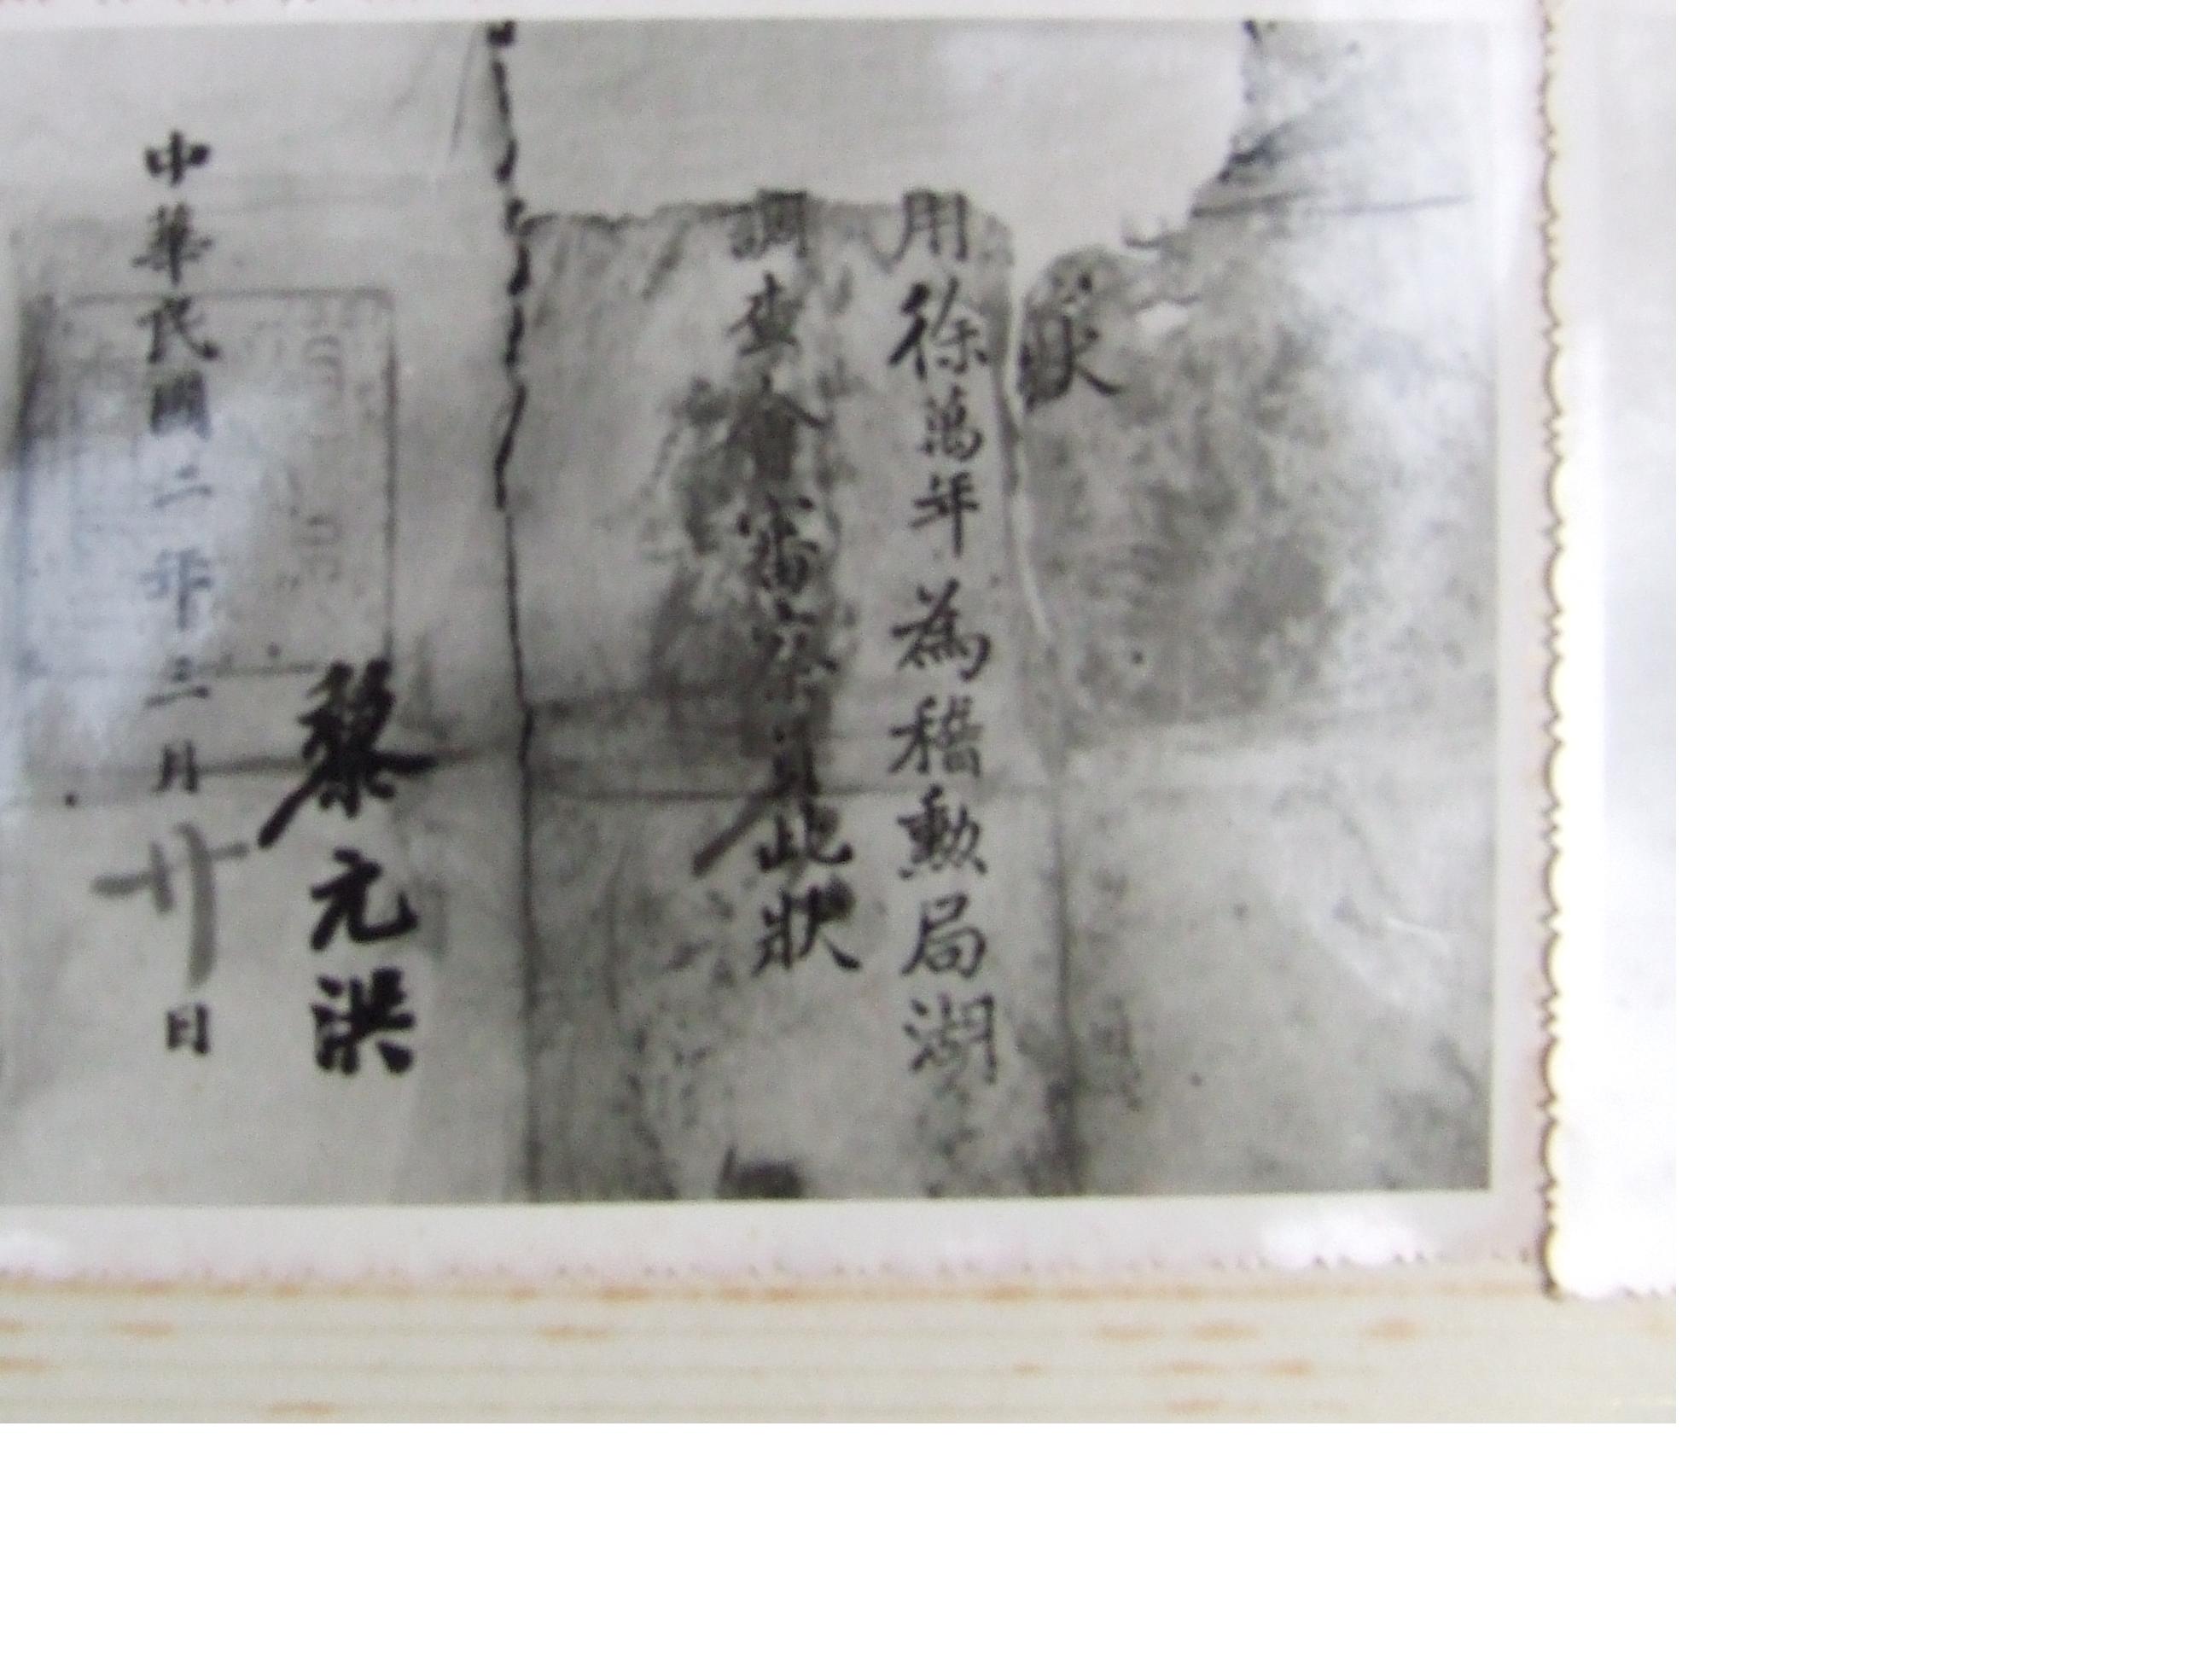 狀
用徐萬年為稽勳局湖
調查會審查員此狀
黎元洪
中華民國二年三月廿日